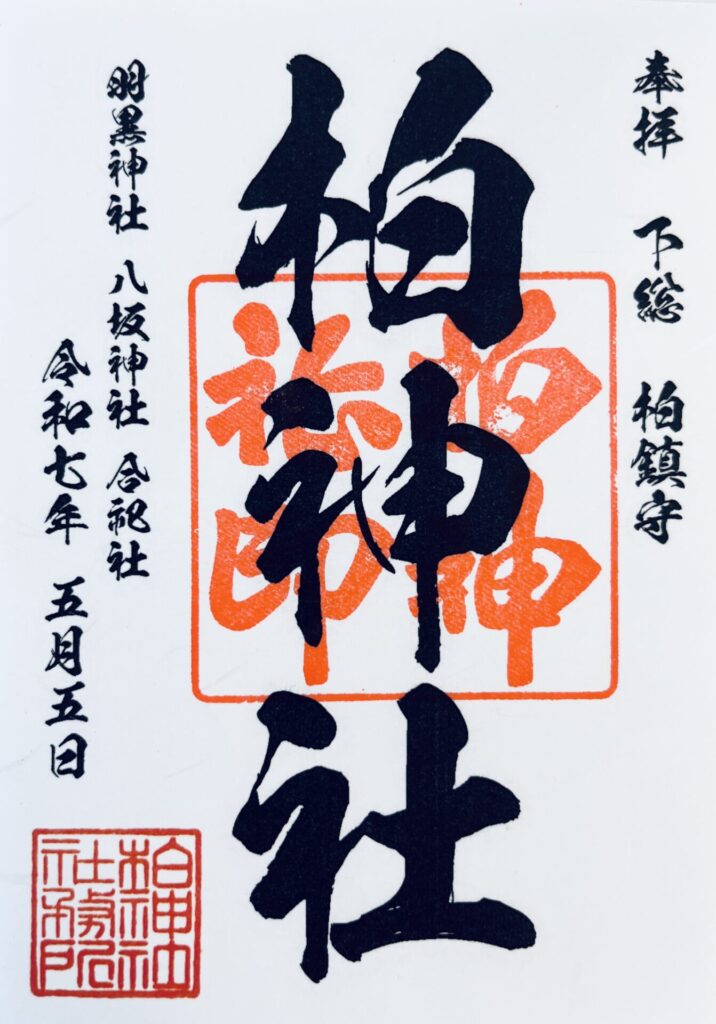 奉拝 下総 柏鎮守
柏神社
柏神社印
羽黒神社 八坂神社 合祀社
令和七年 五月五日
柏神社
社務所